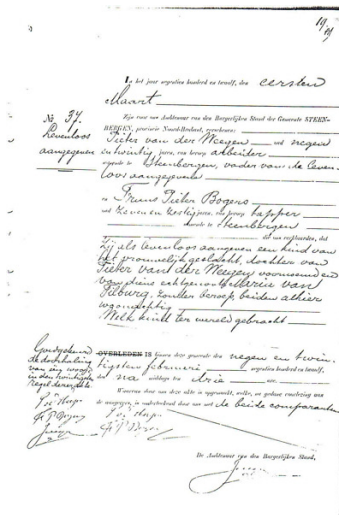 19
In het jaar negentien honderd en twaalf, den eersten
Maart
Zijn voor ons Ambtenaar van den Burgerlijken Stand der Gemeente STEEN-
BERGEN, provincie Noord-Brabant, verschenen:
No 37.
Levenloos
aangegeven
Pieter van der Meegen oud negen
en twintig jaren, van beroep arbeider
wonende te Steenbergen, vader van de leven-
loos aangegevene
en Frans Pieter Bogers
oud zeven en zestig jaren, van beroep tapper
wonende te Steenbergen
dit ons verklaarden, dat
zij als levenloos aangeven een kind van
het vrouwelijk geslacht, dochter van
Pieter van der Meegen voornoemd en
van diens echtgenoote Maria van
Tilburg, zonder beroep, beiden alhier
woonachtig
Welk kind ter wereld gebracht
OVERLEDEN IS binnen deze gemeente den negen en twin-
tigsten februari negentien honderd en twaalf,
des na middags te drie ure
Goedgekeurd
de doorhaling
van een woord
in den twintigsten
regel dezer akte
Waarvan door ons deze akte is opgemaakt, welke, na gedane voorlezing aan
de aangevers, is onderteekend door ons en de beide comparanten
De Ambtenaar van den Burgerlijken Stand,